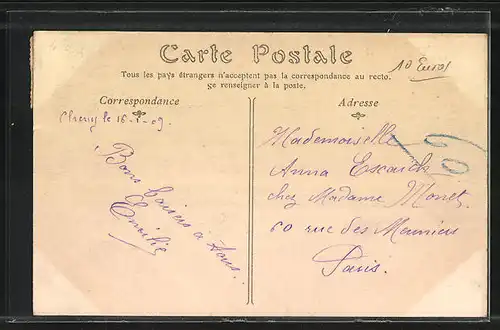 Carte Postale
Tous les pays étrangers n'acceptent pas la correspondance au recto.
se renseigner à la poste.
10 Euros
Correspondance
Adresse
le 16-1-09.
Bons baisers à tous.
Emilie
Mademoiselle
Anna
chez Madame Monet
60 rue des Meuniers
Paris.
60